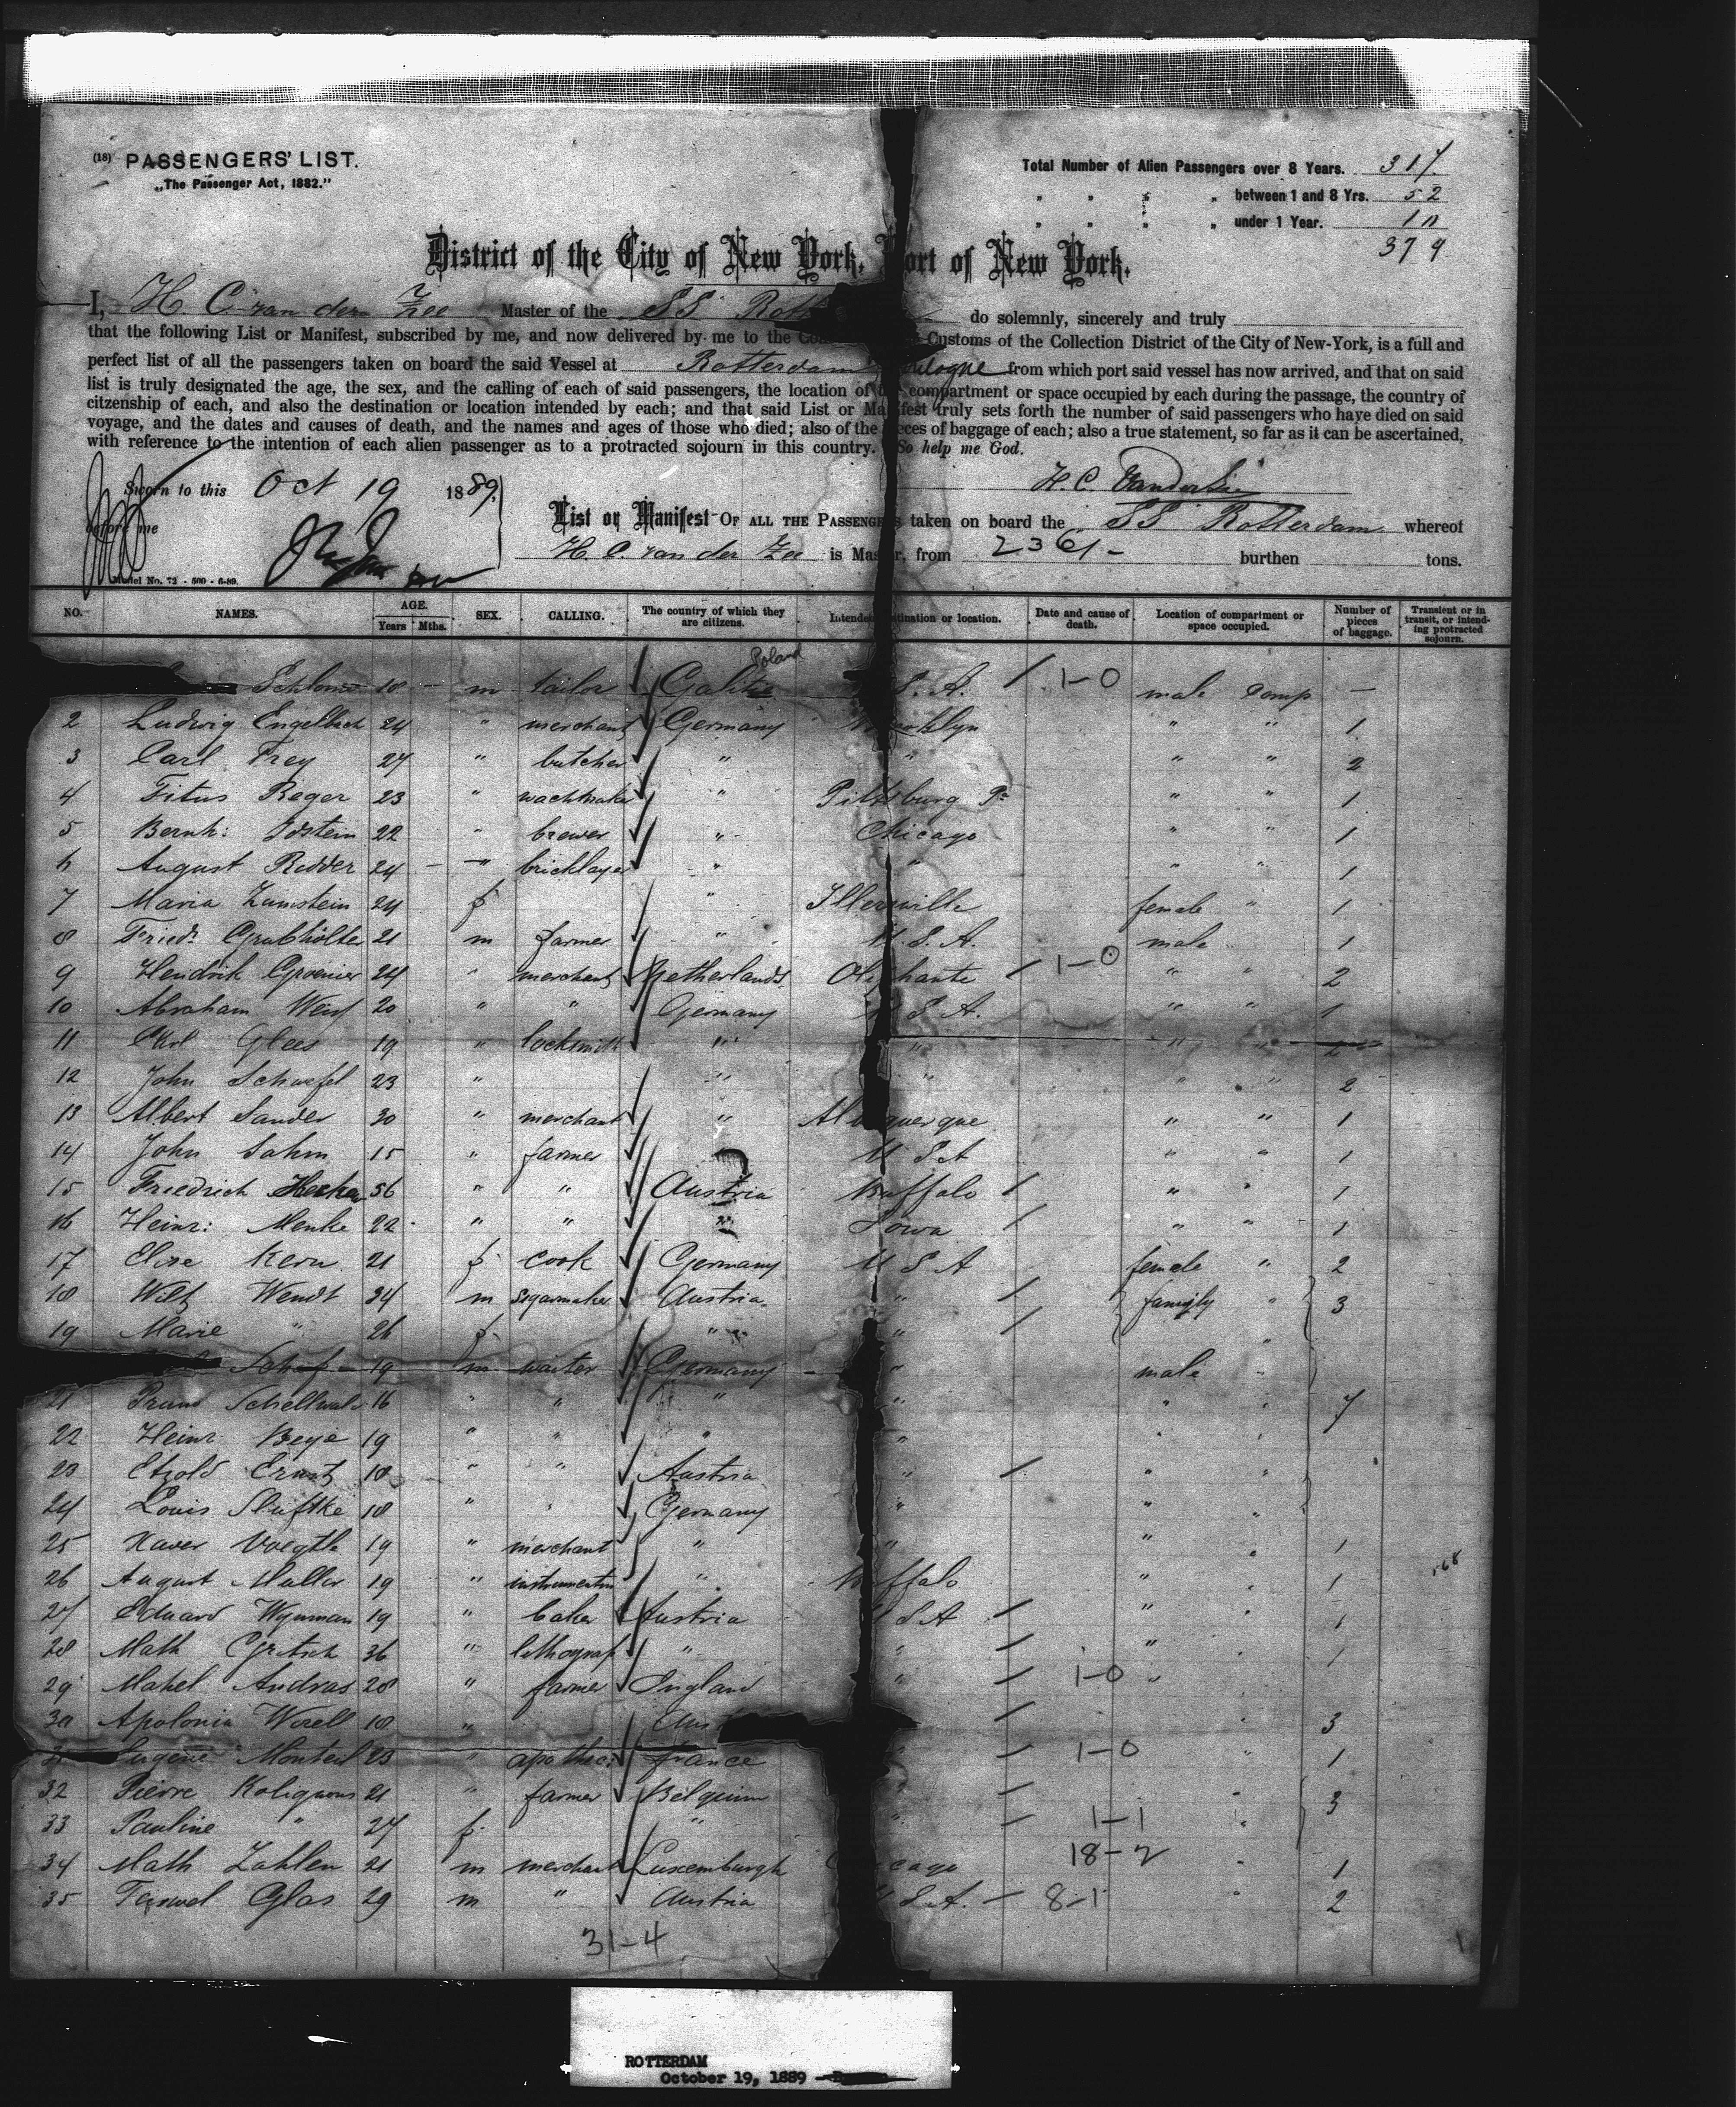 (18) PASSENGERS' LIST.
„The Passenger Act, 1882."
Total Number of Alien Passengers over 8 Years. 317.
" " " " between 1 and 8 Yrs. 52
" " " " under 1 Year. 10
379
District of the City of New York, Port of New York.
I, H. C. van der Zee Master of the SS Rott do solemnly, sincerely and truly
that the following List or Manifest, subscribed by me, and now delivered by me to the Customs of the Collection District of the City of New-York, is a full and
perfect list of all the passengers taken on board the said Vessel at Rotterdam from which port said vessel has now arrived, and that on said
list is truly designated the age, the sex, and the calling of each of said passengers, the location of the compartment or space occupied by each during the passage, the country of
citzenship of each, and also the destination or location intended by each; and that said List or Manifest truly sets forth the number of said passengers who have died on said
voyage, and the dates and causes of death, and the names and ages of those who died; also of the pieces of baggage of each; also a true statement, so far as it can be ascertained,
with reference to the intention of each alien passenger as to a protracted sojourn in this country. So help me God.
Sworn to this Oct 19 1889.
before me
H. C. Vanderzee
List or Manifest OF ALL THE PASSENGERS taken on board the SS Rotterdam whereof
H. C. van der Zee is Master, from 2361- burthen tons.
Model No. 72 - 500 - 6-89.
NO. NAMES. AGE. Years Mths. SEX. CALLING. The country of which they are citizens. Intended destination or location. Date and cause of death. Location of compartment or space occupied. Number of pieces of baggage. Transient or in transit, or intending protracted sojourn.
Poland
Schlome 18 - m tailor Galitz S. A. 1-0 male Comp -
2 Ludwig Engelbach 24 " merchant Germany Brooklyn " " 1
3 Carl Frey 27 " butcher " " " " 2
4 Titus Reger 23 " wachtmaker " Pittsburg Pa " " 1
5 Bernh: Idstein 22 " brewer " Chicago " " 1
6 August Ridder 24 - " bricklayer " " " " 1
7 Maria Zumstein 24 f " female " 1
8 Friedr Grubholter 21 m farmer " U. S. A. male 1
9 Hendrik Groenier 24 " merchant Netherlands Olyphante 1-0 " " 2
10 Abraham Weis 20 " " Germany U S A. " " 1
11 Carl Glees 19 " locksmith " " " " 2
12 John Schaefel 23 " " " " " 2
13 Albert Sander 30 " merchant " Albuquerque " " 1
14 John Sahm 15 " farmer " U S A " " 1
15 Friedrich Hecker 56 " " Austria Buffalo " " 1
16 Heinr: Menke 22 " " " Iowa " " 1
17 Elise Kern 21 f cook Germany U S A female " 2
18 Wilh Wendt 34 m sigarmaker Austria " family " 3
19 Marie " 26 f " " "
Schaf 19 m waiter Germany " male "
21 Bruno Schellwald 16 " " " " " " 7
22 Heinr Beye 19 " " " " " "
23 Etzold Ernst 18 " " Austria " " "
24 Louis 18 " " Germany " " "
25 Xaver Voegtle 19 " merchant " " " " 1
26 August Muller 19 " " Buffalo " 1
27 Eduard Wynman 19 " baker Austria U S A " " 1
28 Math Gritsch 36 " lithograf " " " " 1
29 Mahel Andras 28 " farmer England " 1-0 "
30 Apolonia Worell 18 " Aust " 3
31 Eugene Monteil 23 " apothec: France " 1-0 " 1
32 Pierre 21 " farmer Belgium " " 3
33 Pauline " 27 f " " 1-1 "
34 Math Zahlen 21 m merchant Luxemburgh Chicago 18-2 " 1
35 Glas 29 m " Austria U S. A. - 8-1 " 2
31-4
ROTTERDAM
October 19, 1889